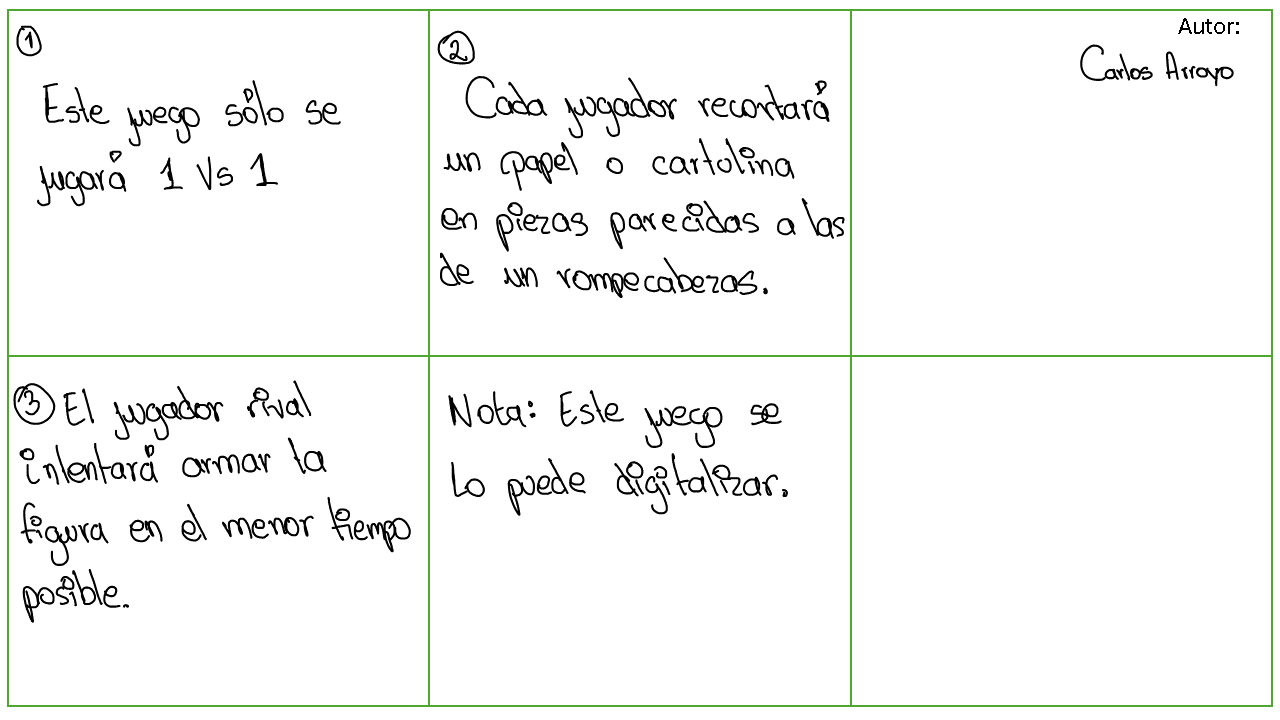 ①
Este juego sólo se
jugará 1 Vs 1
②
Cada jugador recortará
un papel o cartolina
en piezas parecidas a las
de un rompecabezas.
Autor:
Carlos Arroyo
③ El jugador rival
intentará armar la
figura en el menor tiempo
posible.
Nota: Este juego se
lo puede digitalizar.